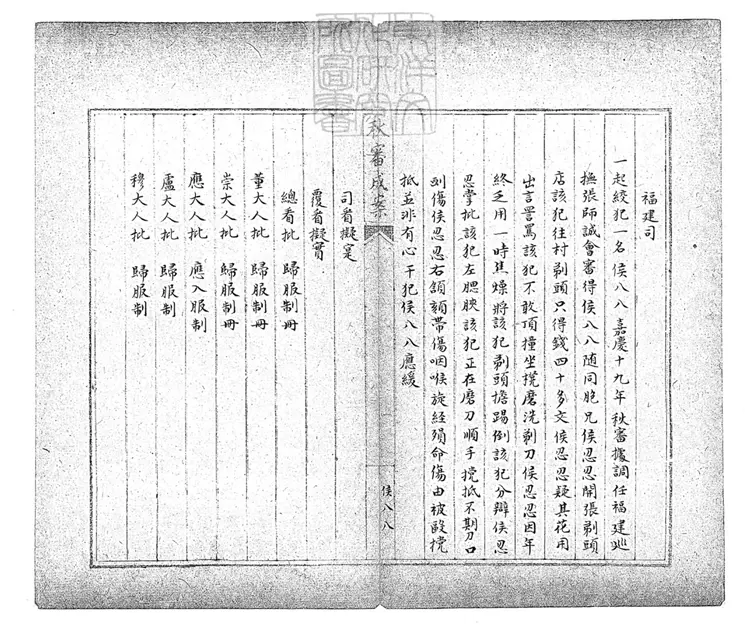 福建司
一起絞犯一名侯八八嘉慶十九年秋審據調任福建巡
撫張師誠會審得侯八八隨同胞兄侯忍忍開張剃頭
店該犯往村剃頭只得錢四十多文侯忍忍疑其花用
出言詈罵該犯不敢頂撞坐櫈磨洗剃刀侯忍忍因年
終乏用一時焦燥將該犯剃頭擔踢倒該犯分辯侯忍
忍掌批該犯左腮腴該犯正在磨刀順手攩抵不期刀口
劃傷侯忍忍右頷頦帶傷咽喉旋經殞命傷由被毆攩
抵並非有心干犯侯八八應緩
秋審成案
侯八八
司看擬寔
覆看擬實
總看批 歸服制冊
董大人批 歸服制冊
崇大人批 歸服制冊
應大人批 應入服制
盧大人批 歸服制
穆大人批 歸服制
東洋文化研究所圖書